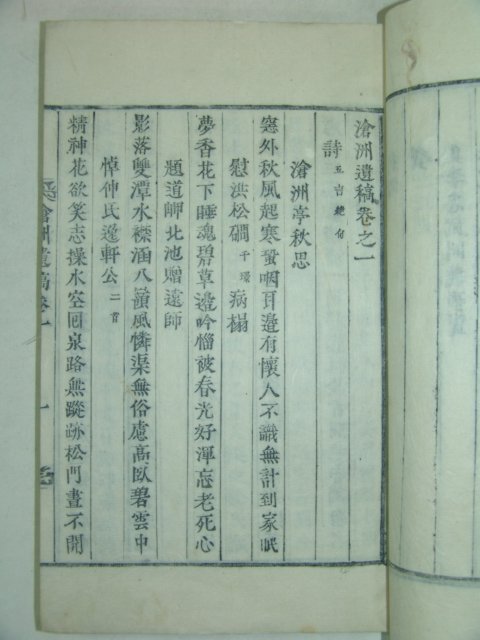 滄洲遺稿卷之一
詩 五言絶句
滄洲亭秋思
窓外秋風起寒蛩咽耳邊有懷人不識無計到家眠
慰洪松磵 千璟 病榻
夢香花下睡魂碧草邊吟惱被春光好渾忘老死心
題道師北池贈遠師
影落雙潭水襟涵八嶺風憐渠無俗慮高臥碧雲中
悼仲氏逸軒公 二首
精神花欲笑志操水空回泉路無蹤跡松門晝不開
滄洲遺稿卷一
一